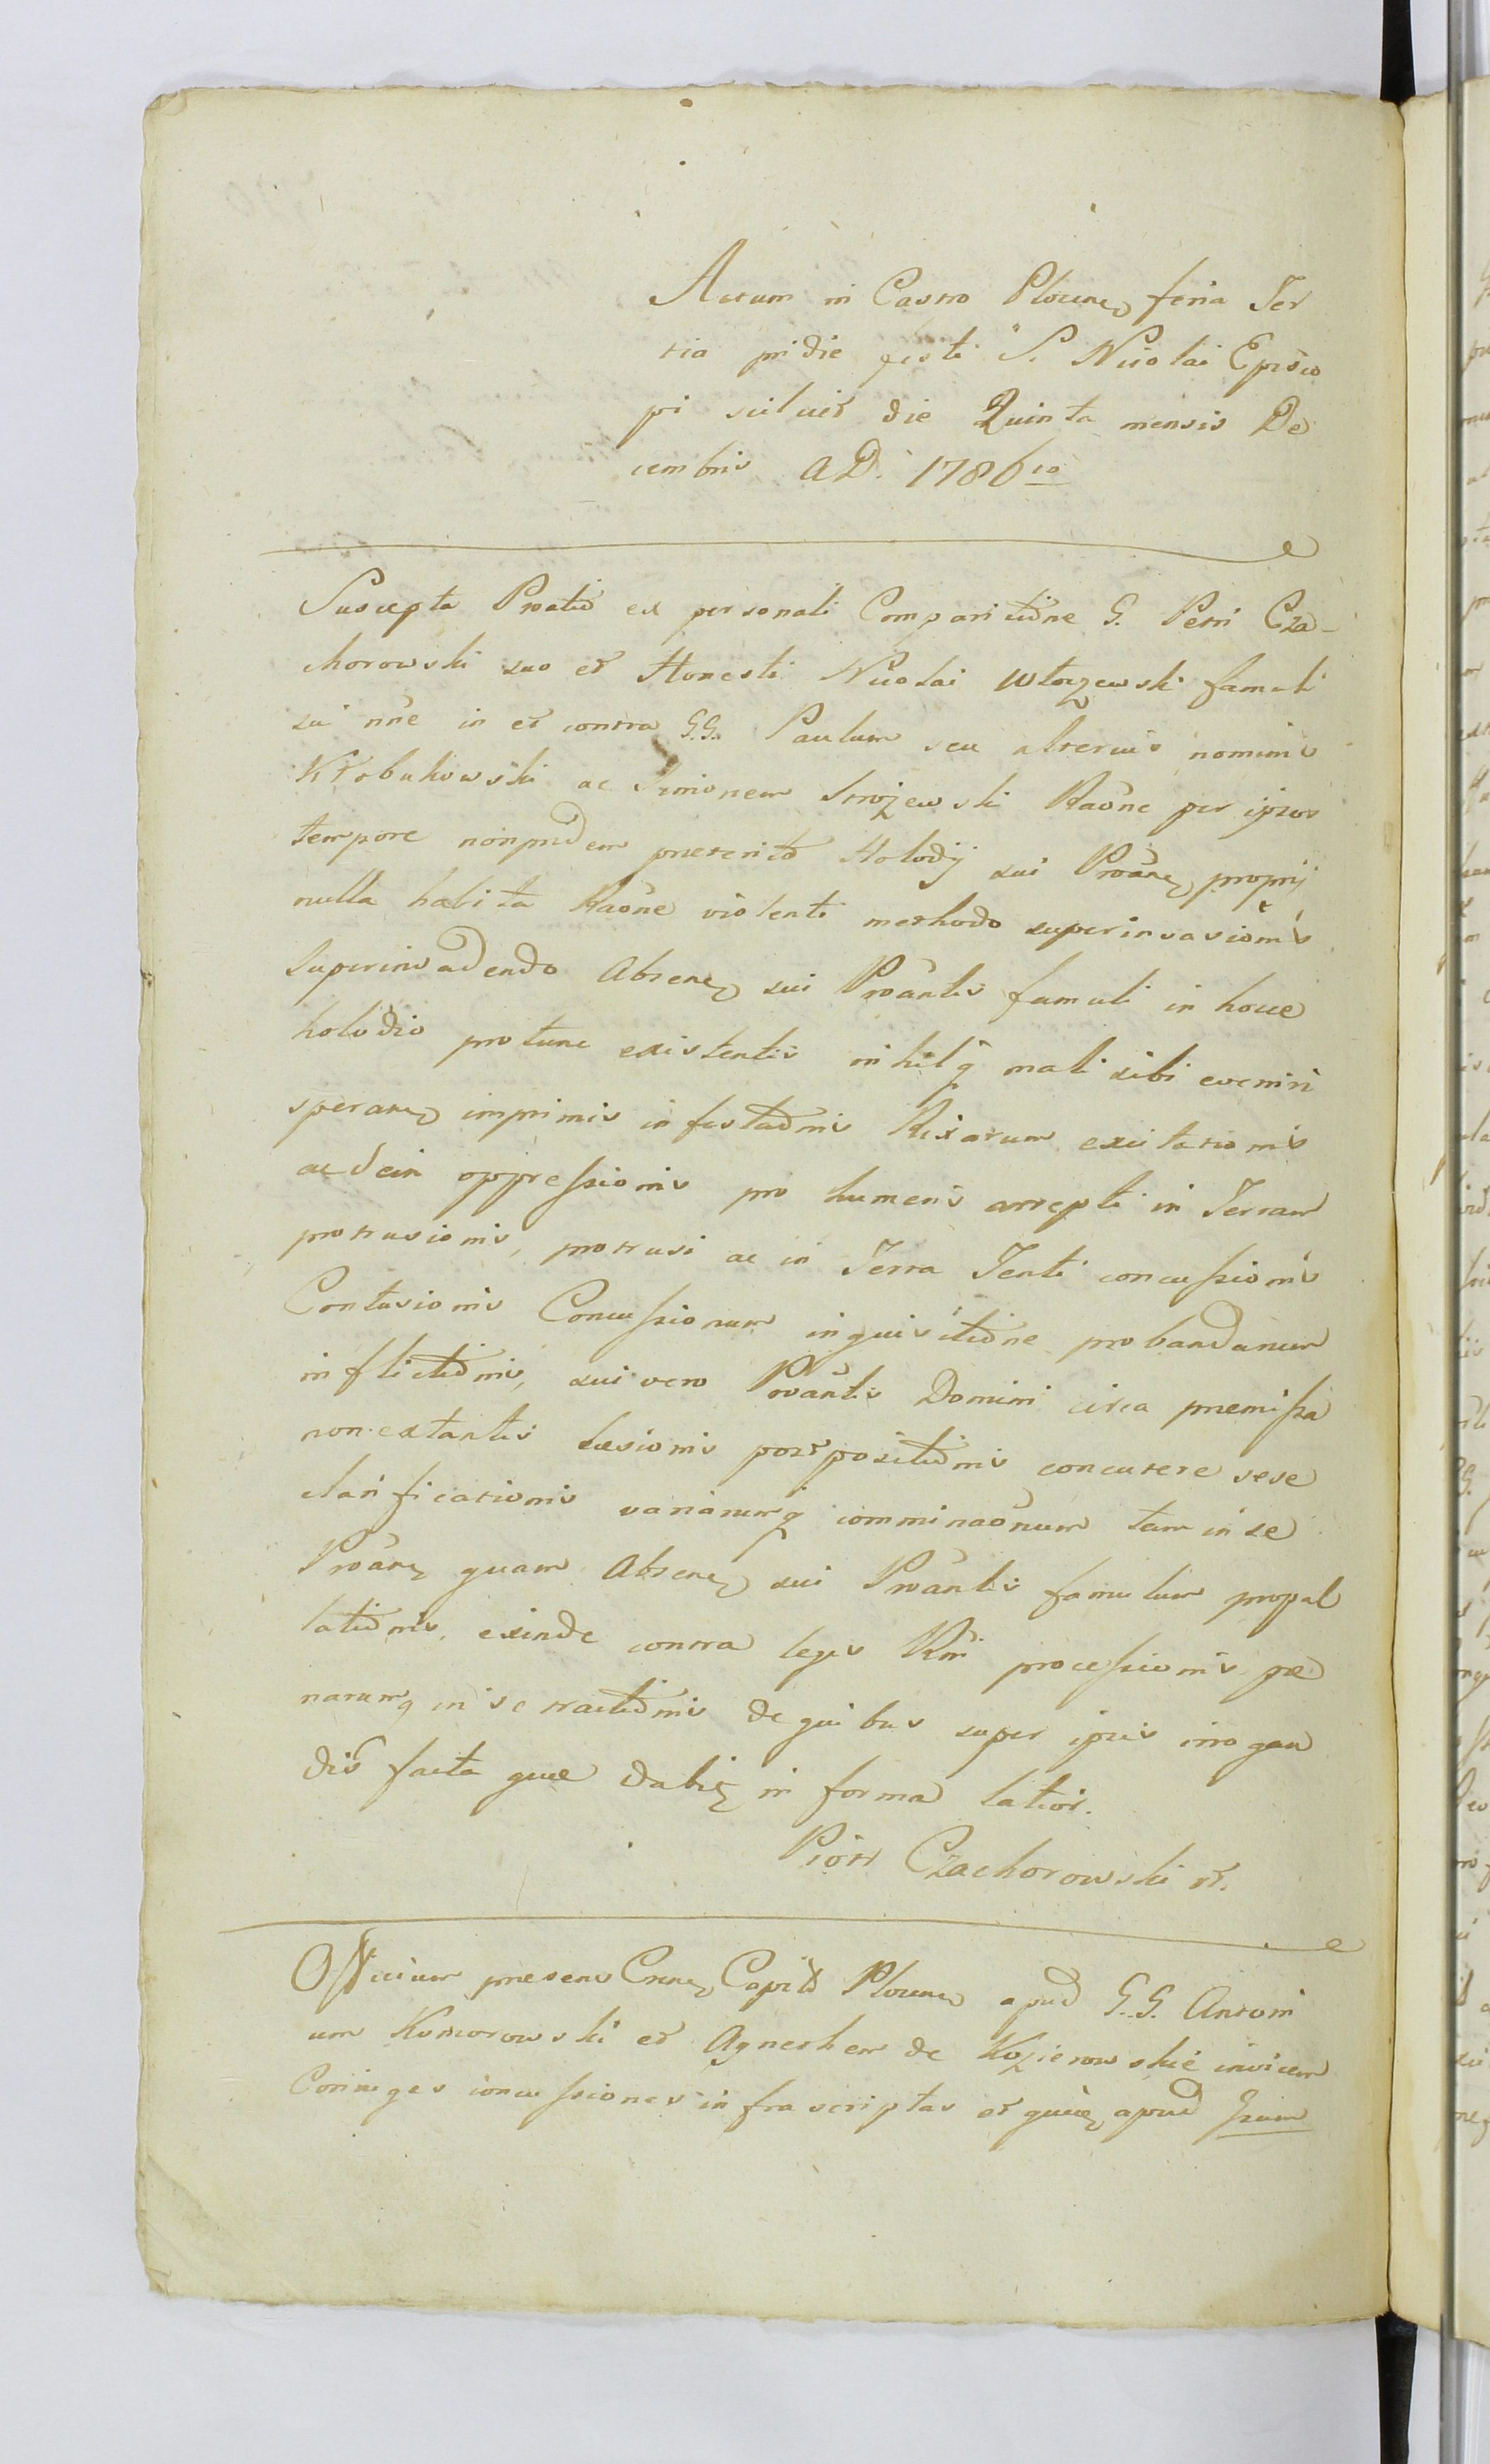 Actum in Castro Plocen, feria Ter
tia pridie festi S. Nicolai Episco
pi scilicet die Quinta mensis De
cembris A D. 1786to
Suscepta Proatio ex personali Comparitiōne G. Petri Cza-
chorowski suo et Honesti Nicolai famuli
sui nōne in et contra G.G. Paulum seu alterius nominis
Kłobukowski ac Simonem Raōne per ipsos
tempore nonpridem preterito Holodij sui Proāntis proprij
nulla habita Raōne violenti methodo superinvasionis
Superinvadendo Absentis sui Proāntis famuli in hocce
holodio protunc existentis nihilq mali sibi eveniri
sperantis imprimis infestaōnis Rixarum excitationis
ac dein oppressionis pro humeris arrepti in Terram
protrusionis, protrusi ac in Terra Tenti concussionis
Contusionis Concussionum inquisitiōne probandarum
inflictiōnis, sui vero Proāntis Domini circa premissa
non extantis læsionis postpositiōnis concutere sese
clarificationis variarumq comminaōnum tam in se
Proān, quam Absen, sui Proāntis famulum propal
latiōnis, exinde contra leges Rni processionis pæ
narumq in se tractiōnis de quibus super ipsis irrogan
dis facta quæ dabit in forma latiori.
Piotr Czachorowski
Officium presens Crens, Capit. Plocen, apud G.G. Antoni
um Komorowski et Agnethem de Kozierowskie invicem
Coniuges concussiones infrascriptas et apud